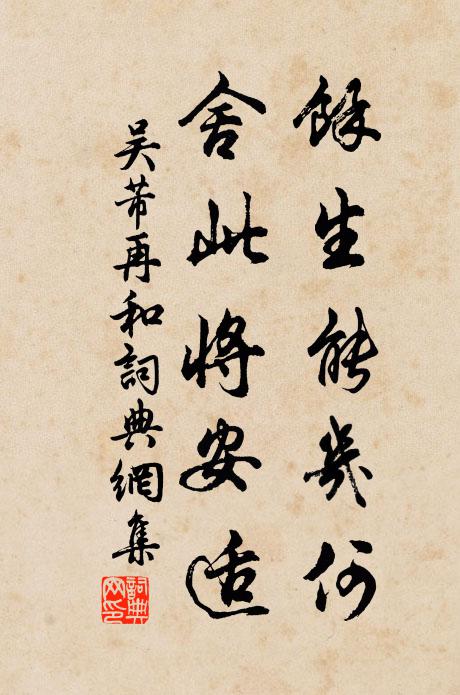 餘生能幾何
舍此將安適
吴芾再和詞典網集
詞典網印